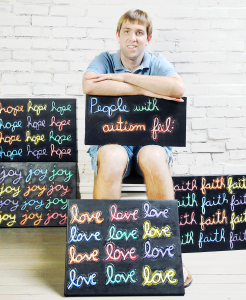 hope hope hope
hope hope hope
hope hope hope
hope hope hope
People with
autism feel:
joy joy joy
joy joy joy
joy joy joy
joy joy joy
faith faith faith
faith faith faith
faith faith faith
faith faith faith
love love love
love love love
love love love
love love love